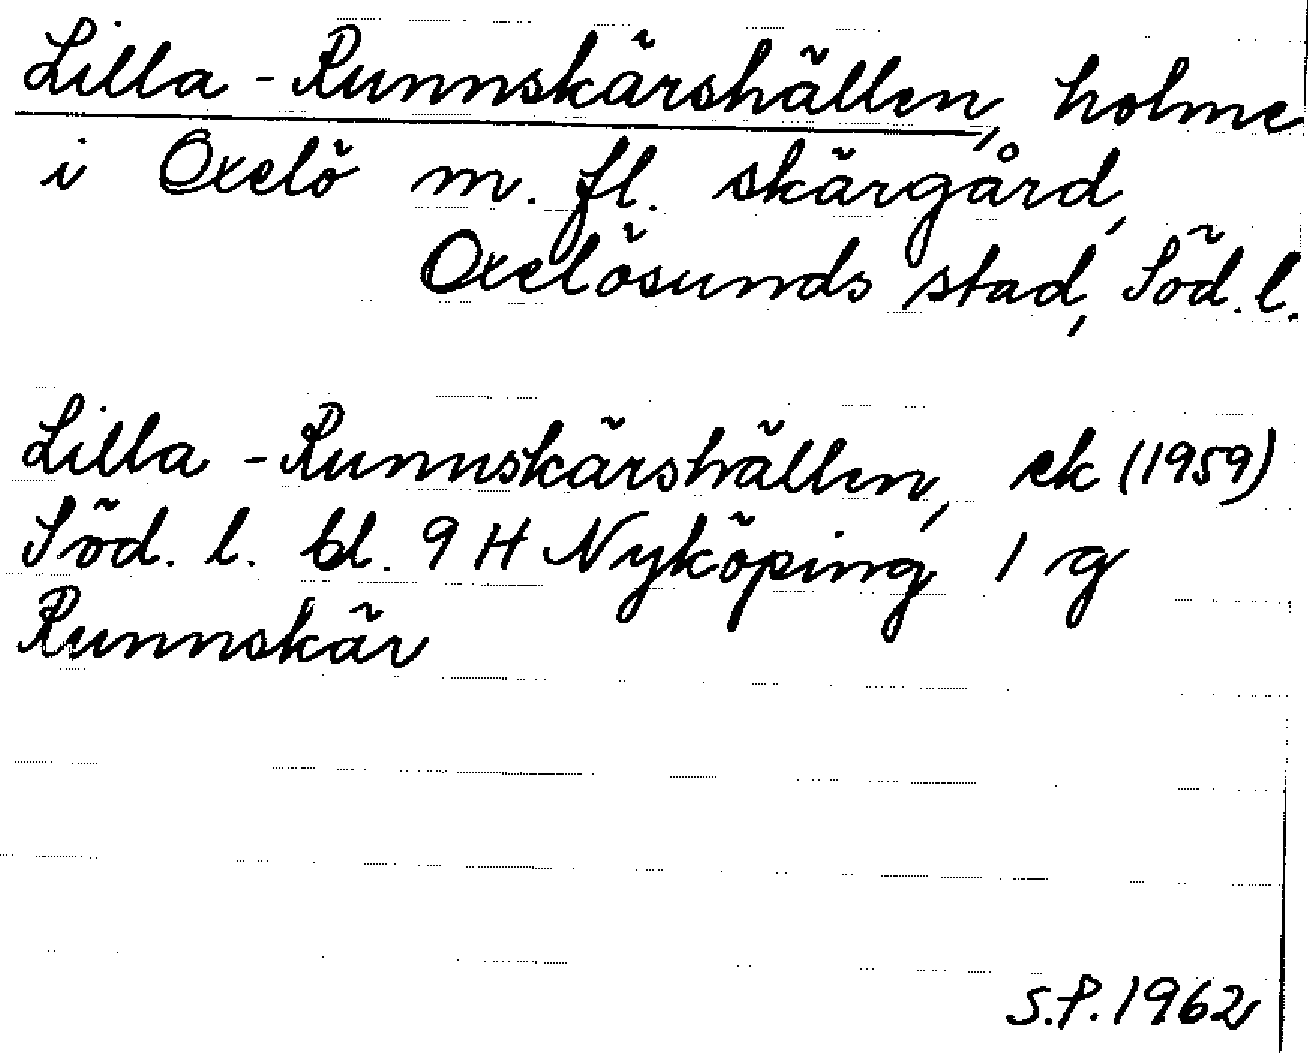 Lilla-Runnskärshällen, holme
i Oxelö m. fl. skärgård,
Oxelösunds stad, Söd. l.
Lilla-Runnskärshällen, ek (1959)
Söd. l. bl. 9 H Nyköping 1 g
Runnskär
S.P. 1962